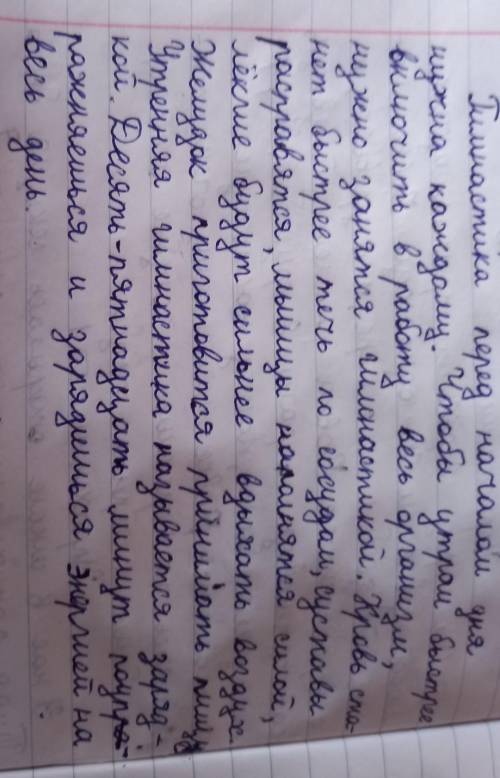 Гимнастика перед началом дня
нужна каждому. Чтобы утром быстрее
включить в работу весь организм,
нужно занятся гимнастикой. Кровь ста-
нет быстрее течь по сосудам, суставы
расправятся, мышцы наполнятся силой,
лёгкие будут сильнее вдыхать воздух.
Желудок приготовится принимать пищу.
Утренняя гимнастика называется заряд-
кой. Десять-пятнадцать минут поупра-
ражняешься и зарядишься энергией на
весь день.